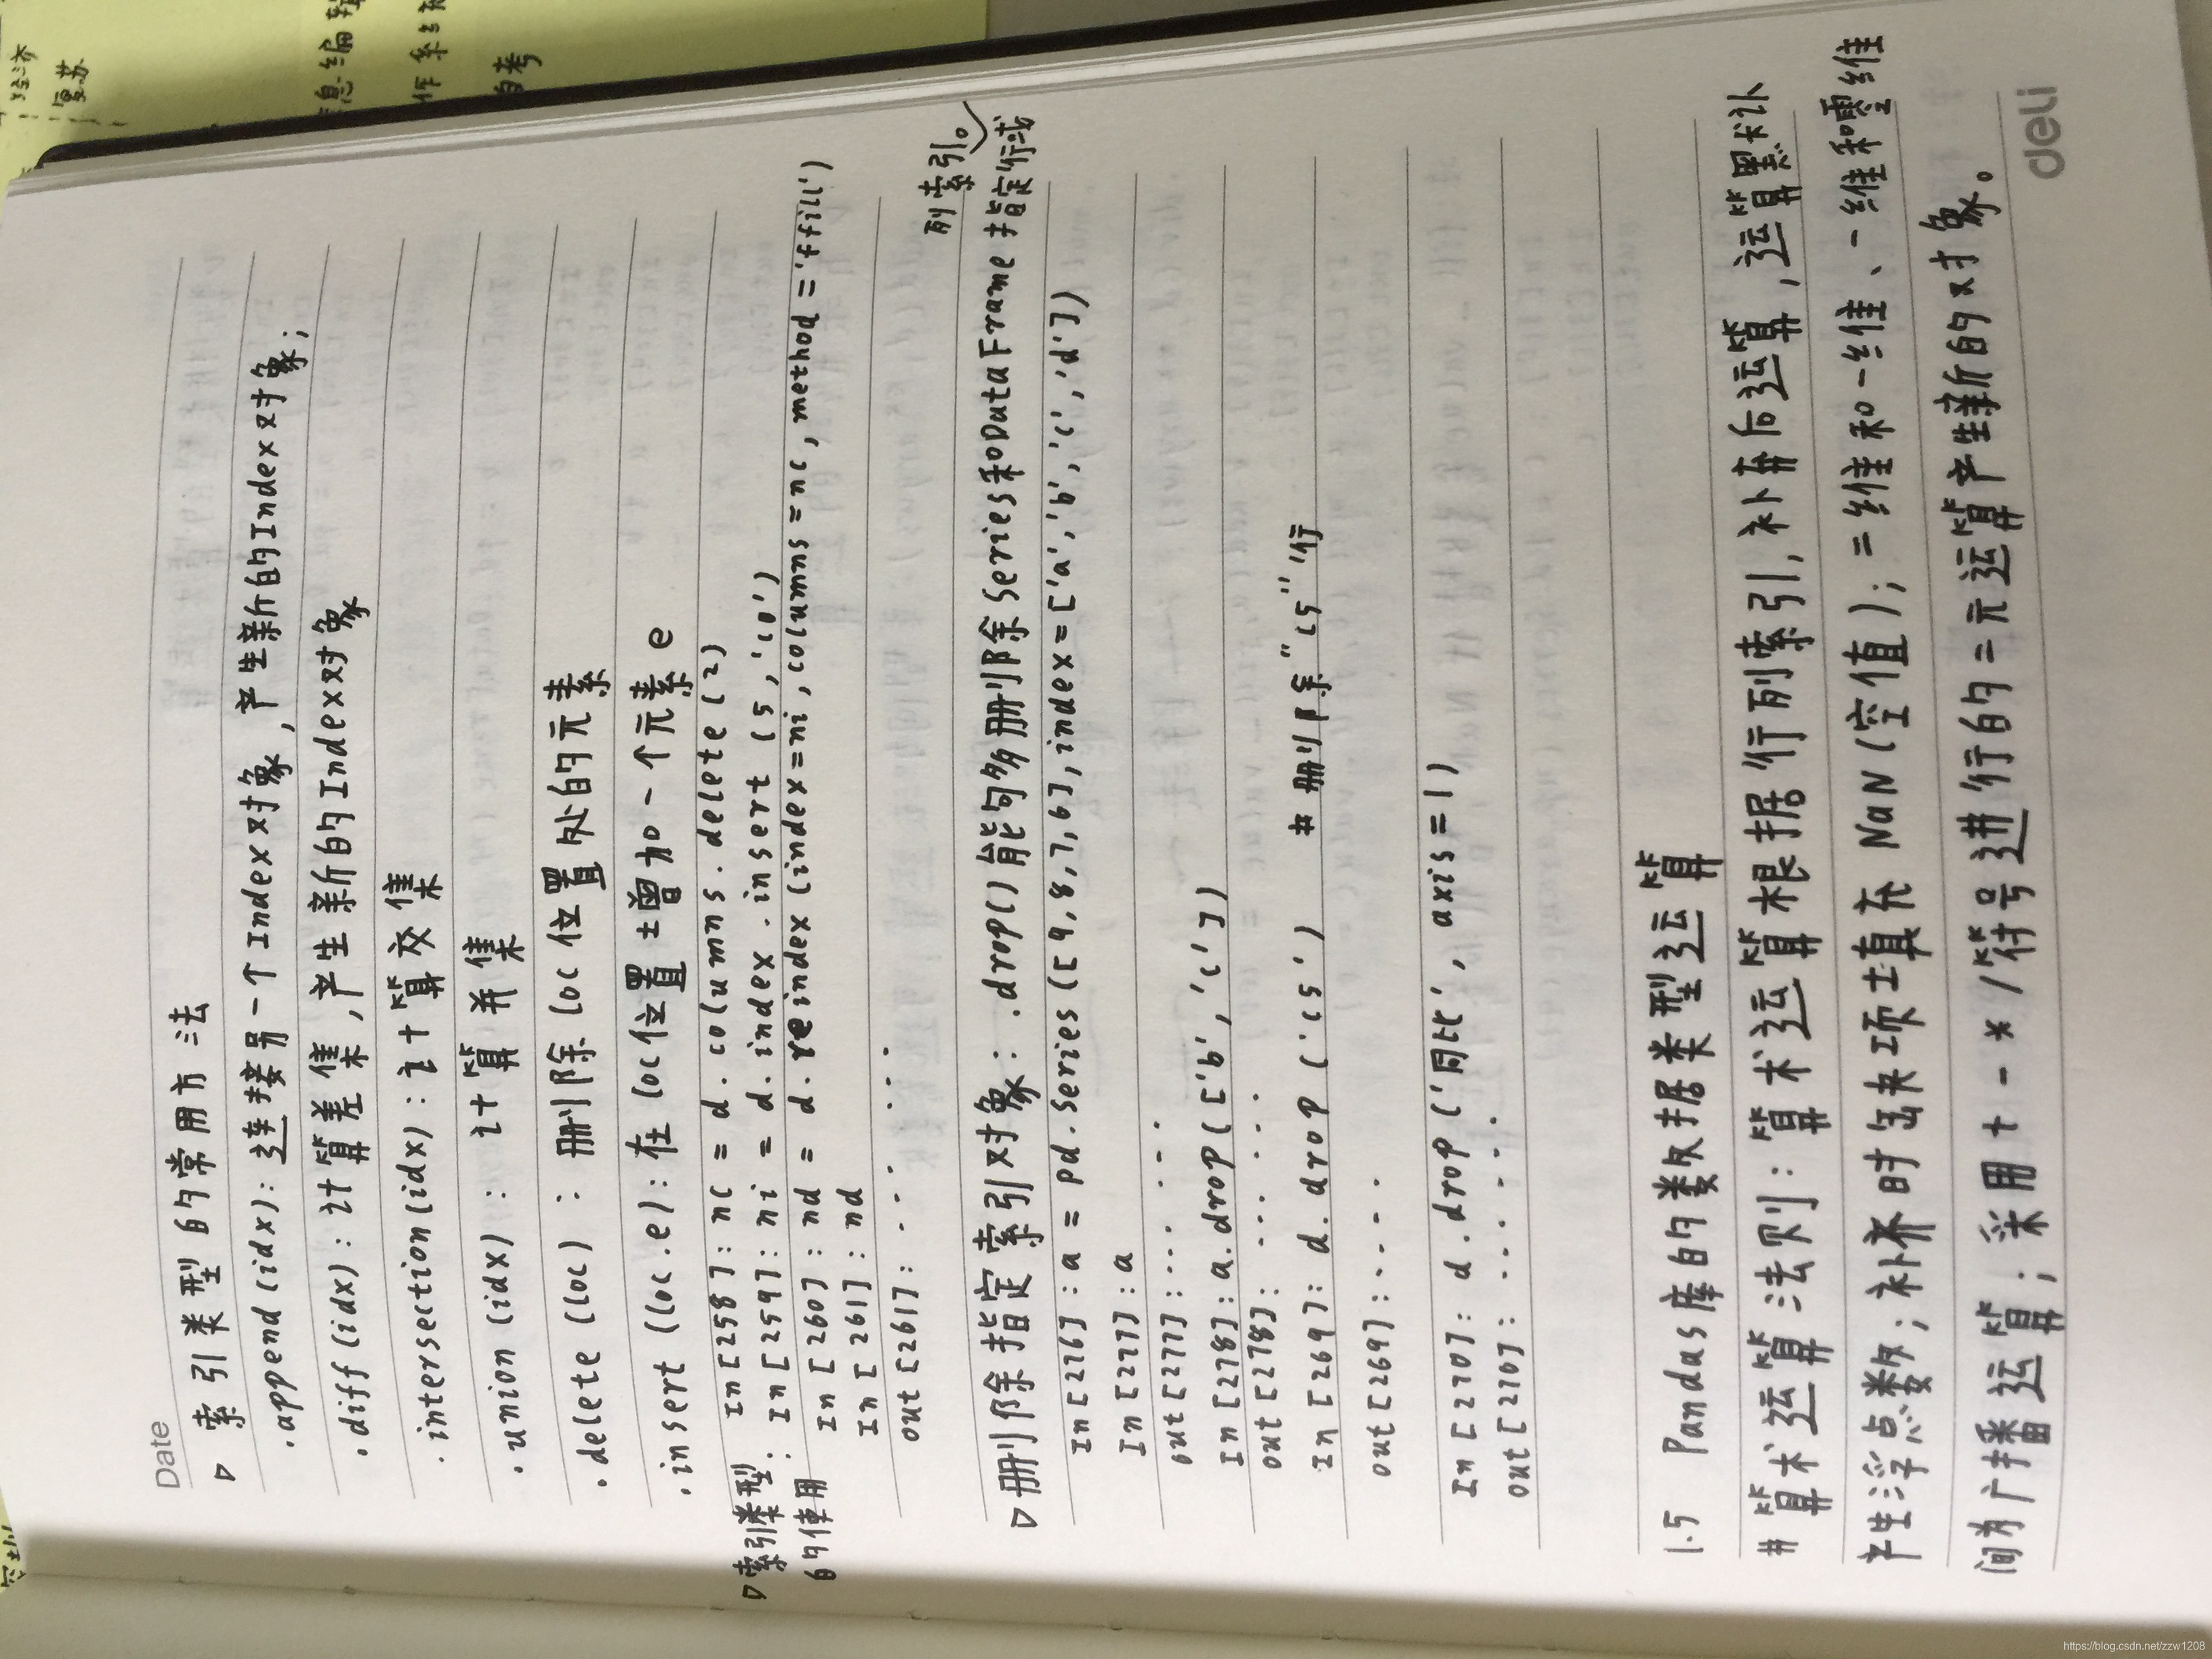 经济
复苏
Date
▷ 索引类型的常用方法
.append(idx): 连接另一个Index对象,产生新的Index对象;
.diff(idx): 计算差集,产生新的Index对象
.intersection(idx): 计算交集
.union(idx): 计算并集
.delete(loc): 删除loc位置处的元素
.insert(loc.e): 在loc位置增加一个元素e
▷索引类型的使用:
In[258]: nc = d.columns.delete(2)
In[259]: ni = d.index.insert(5,'c0')
In[260]: nd = d.reindex(index=ni,columns=nc,method='ffill')
In[261]: nd
out[261]: ......
▷删除指定索引对象: .drop()能够删除Series和DataFrame指定行或列索引。
In[276]: a = pd.Series([9,8,7,6],index=['a','b','c','d'])
In[277]: a
out[277]: ......
In[278]: a.drop(['b','c'])
out[278]: ......
In[269]: d.drop('c5') # 删除"c5"行
out[269]: .....
In[270]: d.drop('同比',axis=1)
out[270]: .....
1.5 Pandas库的数据类型运算
# 算术运算法则: 算术运算根据行列索引,补齐后运算,运算默认
产生浮点数; 补齐时缺项填充NaN(空值); 二维和一维、一维和零维
间为广播运算; 采用 + - * / 符号进行的二元运算产生新的对象。
deli
https://blog.csdn.net/zzw1208